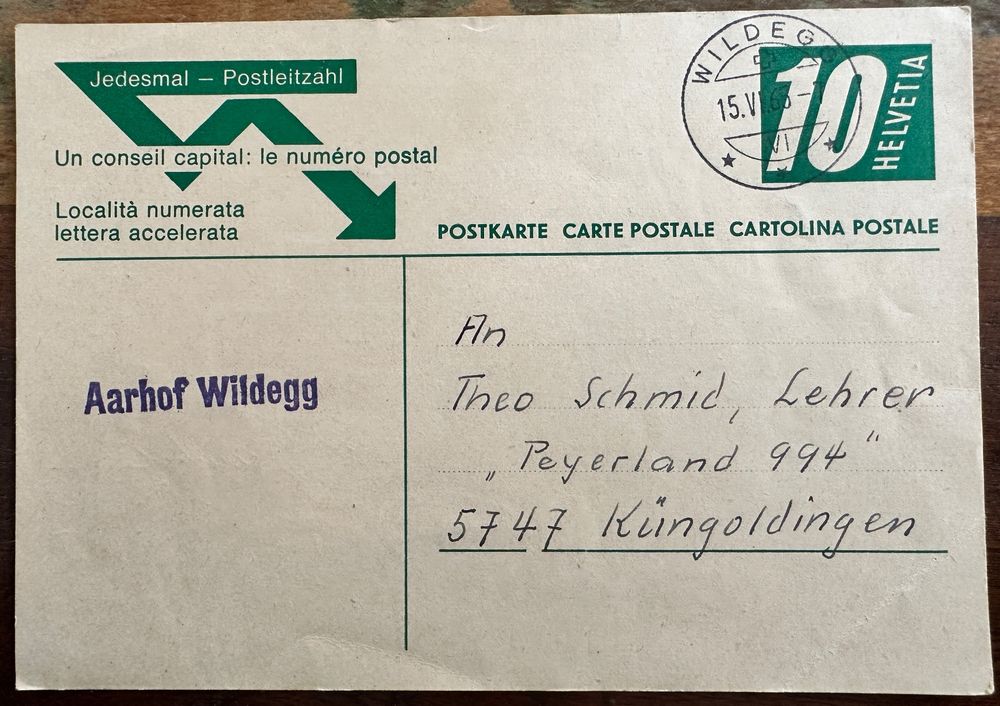 Jedesmal – Postleitzahl
Un conseil capital: le numéro postal
Località numerata
lettera accelerata
WILDEGG
15.VI.
VI
10
HELVETIA
POSTKARTE CARTE POSTALE CARTOLINA POSTALE
Aarhof Wildegg
An
Theo Schmid, Lehrer
„Peyerland 994"
5747 Küngoldingen